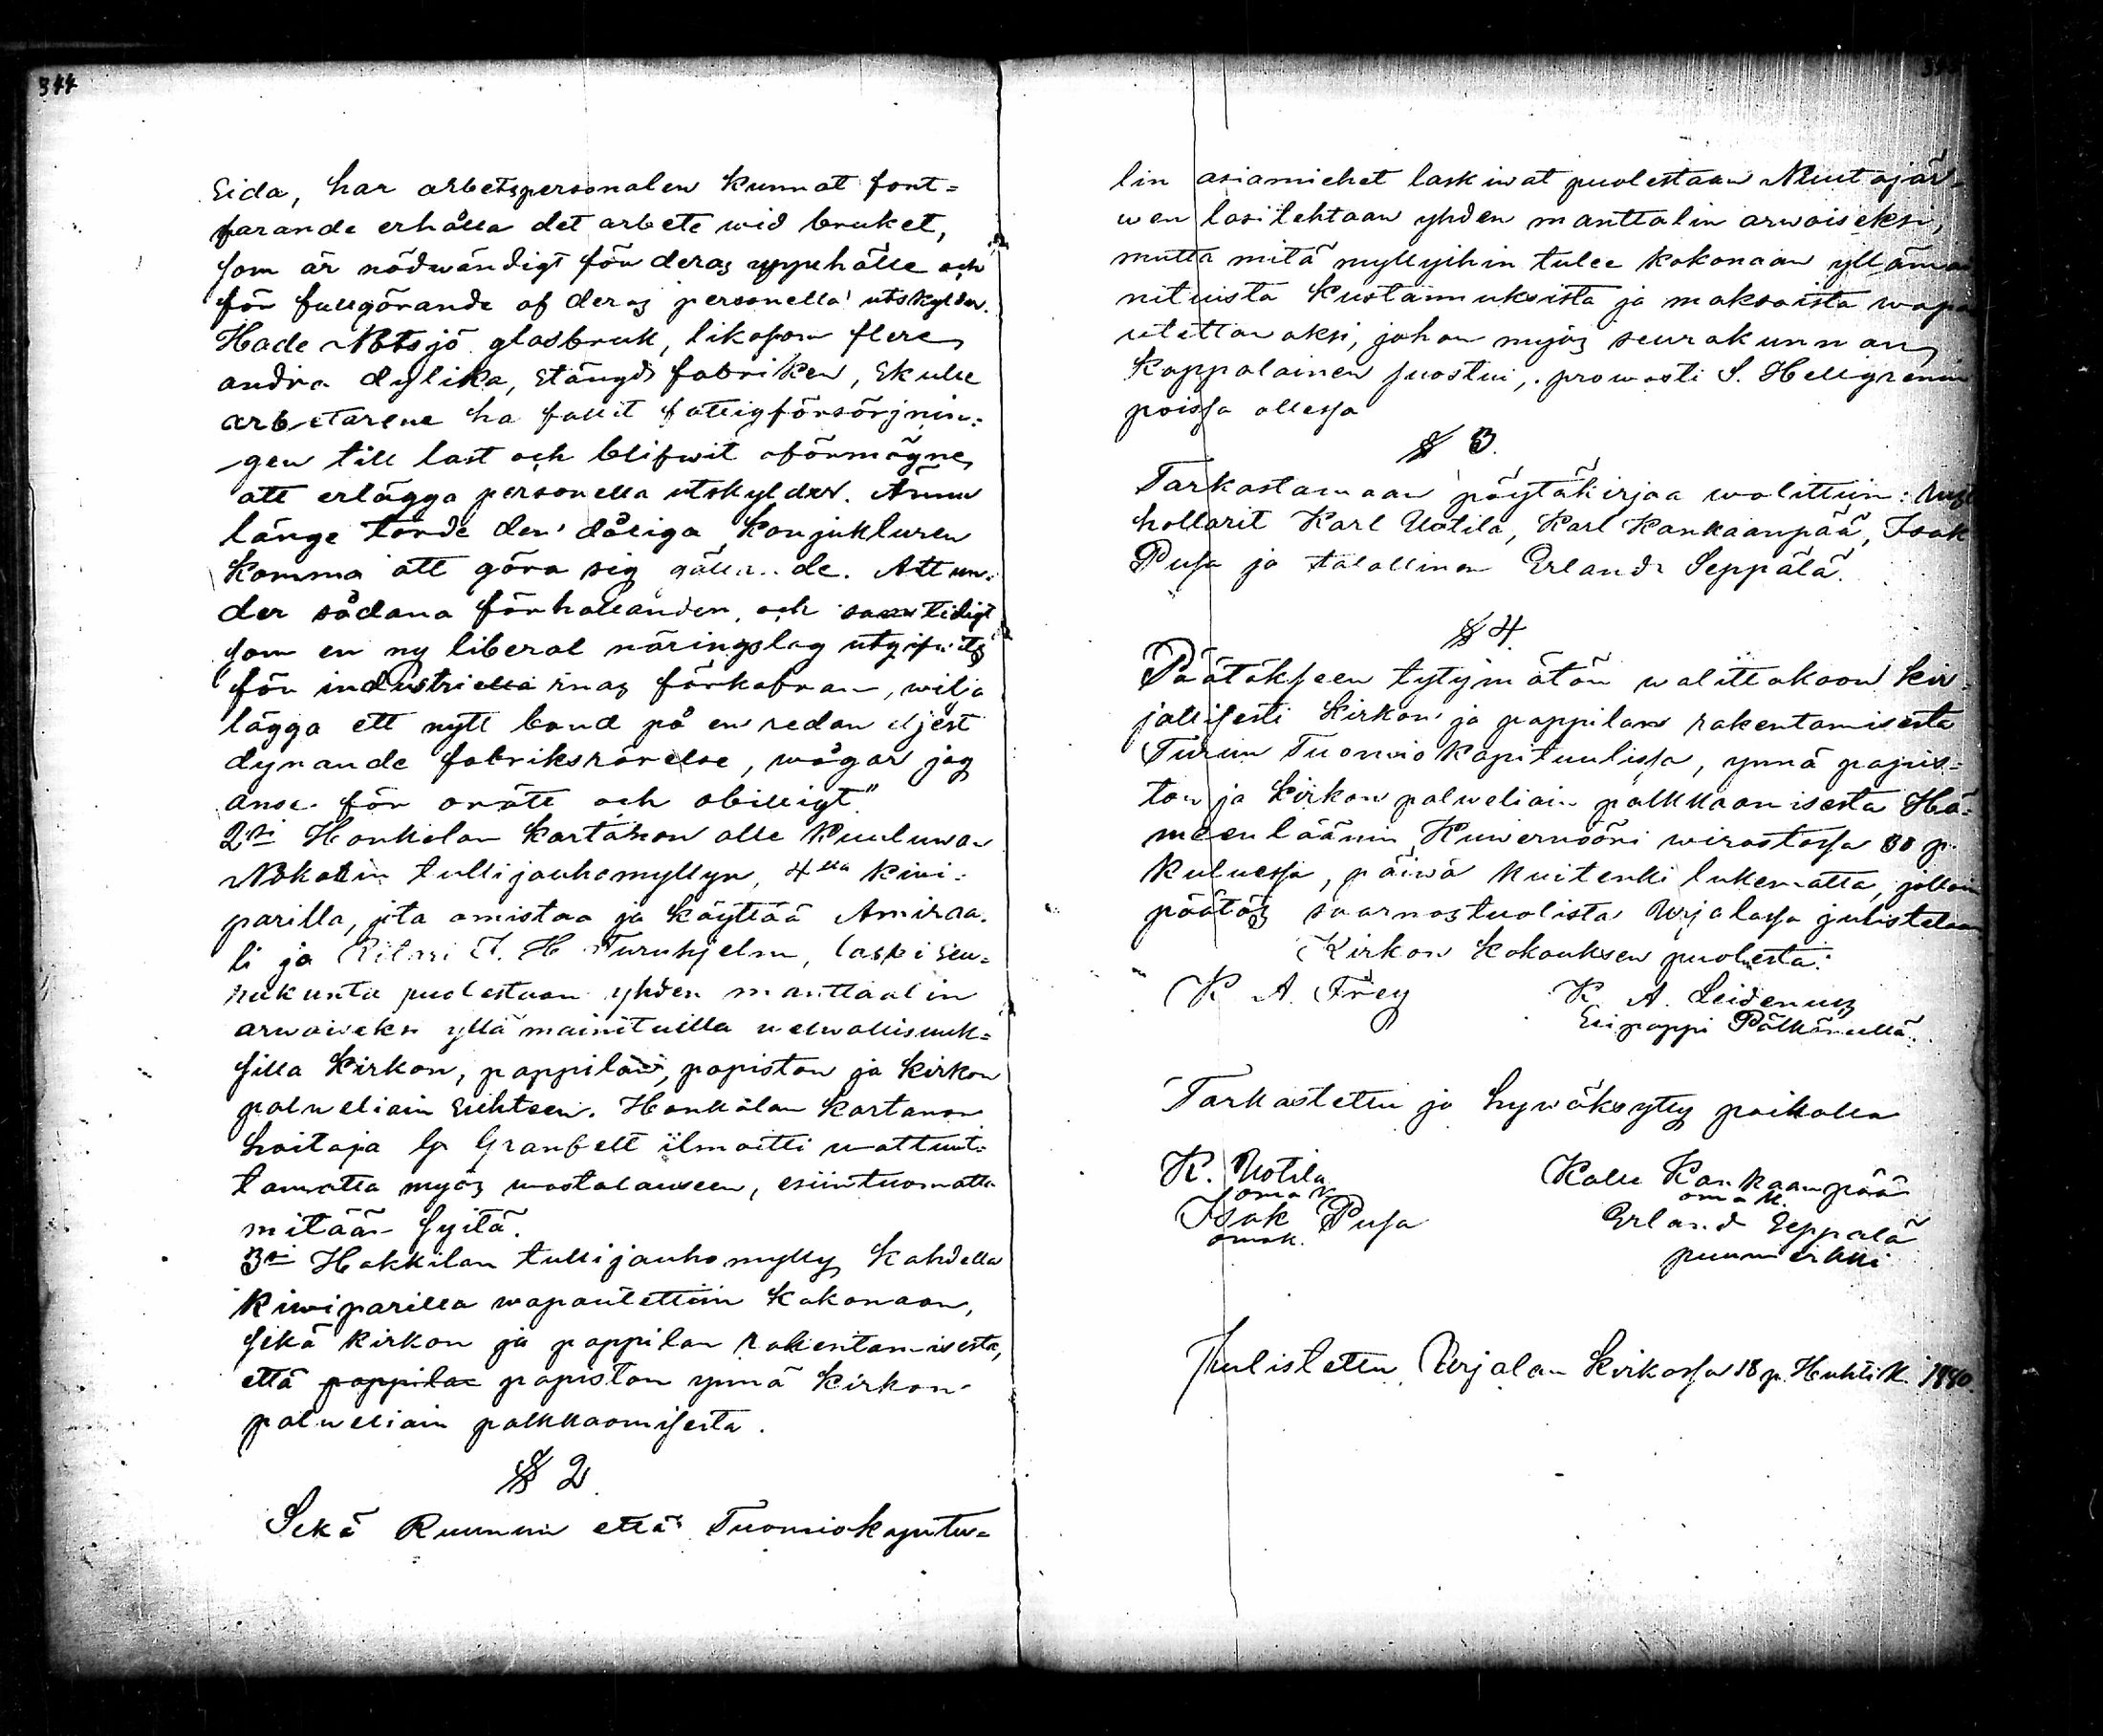 344
sida, har arbetspersonalen kunnat fort-
farande erhålla det arbete wid bruket,
som är nödwändigt för deras uppehälle och
för fullgörande af deras personella utskylder.
Hade Notsjö glasbruk, likasom flere
andra dylika, stängts fabriken, skulle
arbetarene ha fallit fattigförsörjnin-
gen till last och blifwit oförmögne
att erlägga personella utskylder. Ännu
länge torde den dåliga konjukturen
komma att göra sig gällande. Att un-
der sådana förhållanden, och samtidigt
som en ny liberal näringslag utgifwits
för industriella rnas förkofran, wilja
lägga ett nytt band på en redan
dynande fabriksrörelse, wågar jag
anse för orätt och obilligt"
2si Honkolan kartanon alle kuuluwan
Nokarin tullijauhomyllyn, 4llä kiwi-
parilla, jita omistaa ja käyttää Amiraa-
li ja J. H. Furuhjelm, laski seu-
rakunta puolestaan yhden manttaalin
arwoiseksi yllämainituilla welwollisuuk-
silla kirkon, pappilan, papiston ja kirkon
palweliain suhteen. Honkolan kartanon
hoitaja G. Granfelt ilmoitti wattuut-
tamatta myös wastalauseen, esiintuomatta
mitään syitä.
3si Hakkilan tullijauhomylly kahdella
kiwiparilla wapautettiin kokonaan,
sekä kirkon ja pappilan rakentamisesta,
että pappilan papiston ynnä kirkon-
palweliain palkkaamisesta.
§ 2.
Sekä Ruunun että Tuomiokapitu-
lin asiamiehet laskiwat puolestaan Nuutajär-
wen lasitehtaan yhden manttalin arwoiseksi,
mutta mitä myllyihin tulee kokonaan yllämai
nituista kustannuksista ja maksoista wapa
utettawaksi, johon myös seurakunnan
kappalainen suostui, prowasti S. Hellgrenin
poissa ollessa
§ 3.
Tarkastamaan pöytäkirjaa walittiin: Rus
hollarit Karl Uotila, Karl Kankaanpää, Isak
Pusa ja talollinen Erland Seppälä.
§ 4.
Päätökseen tytymätön walittakoon kir-
jallisesti kirkon ja pappilan rakentamisesta
Turun Tuomiokapituulissa, ynnä papis-
ton ja kirkon palweliain palkkaamisesta Hä-
meenläänin Kuwernööri wirastossa 30 p.
kuluessa, päiwä kuitenki lukematta, jolloin
päätös saarnastuolista Urjalassa julistetaan
Kirkon kokouksen puolesta:
K. A. Frey K. A. Leidenius
Esipappi Pälkäneellä.
Tarkastettu ja hywäksytty paikalla
K. Uotila Kalle Kankaanpää
oma k. oma k.
Isak Pusa Erland Seppälä
omak. puumerkki
Julistettu Urjalan kirkossa 18 p. Huhtik. 1880.